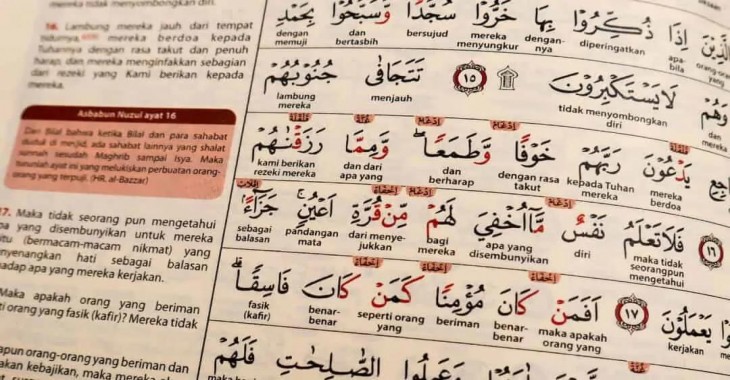 tidak menyombongkan diri.
16. Lambung mereka jauh dari tempat
tidurnya, mereka berdoa kepada
Tuhannya dengan rasa takut dan penuh
harap, dan mereka menginfakkan sebagian
dari rezeki yang Kami berikan kepada
mereka.
Asbabun Nuzul ayat 16
Dari Bilal bahwa ketika Bilal dan para sahabat
duduk di mesjid, ada sahabat lainnya yang shalat
sunnah sesudah Maghrib sampai Isya. Maka
turunlah ayat ini yang melukiskan perbuatan orang-
orang yang terpuji. (HR. al-Bazzar)
17. Maka tidak seorang pun mengetahui
apa yang disembunyikan untuk mereka
itu (bermacam-macam nikmat) yang
menyenangkan hati sebagai balasan
terhadap apa yang mereka kerjakan.
Maka apakah orang yang beriman
orang yang fasik (kafir)? Mereka tidak
apun orang-orang yang beriman dan
akan kebajikan, maka mereka
الَّذِيْنَ اِذَا ذُكِّرُوْا بِهَا خَرُّوْا سُجَّدًا وَّسَبَّحُوْا بِحَمْدِ
orang-orang yang apa-bila diperingatkan dengan-nya mereka menyungkur bersujud dan bertasbih dengan memuji
وَهُمْ لَا يَسْتَكْبِرُوْنَ ۩ ١٥ تَتَجَافٰى جُنُوْبُهُمْ
dan mereka tidak menyombongkan diri menjauh lambung mereka
اِدْغَامْ اِدْغَامْ
يَدْعُوْنَ رَبَّهُمْ خَوْفًا وَّطَمَعًاۖ وَّمِمَّا رَزَقْنٰهُمْ
mereka berdoa kepada Tuhan mereka dengan rasa takut dan berharap dan dari apa yang kami berikan rezeki mereka
١٦ فَلَا تَعْلَمُ نَفْسٌ مَّآ اُخْفِيَ لَهُمْ مِّنْ قُرَّةِ اَعْيُنٍۚ جَزَاۤءًۢ
maka tidak seorangpun mengetahui diri apa yang disembunyikan bagi mereka dari menye-jukkan pandangan mata sebagai balasan
يَعْمَلُوْنَ ١٧ اَفَمَنْ كَانَ مُؤْمِنًا كَمَنْ كَانَ فَاسِقًاۗ
kerjakan maka apakah orang yang benar-benar beriman seperti orang yang benar-benar fasik (kafir)
وَعَمِلُوا الصّٰلِحٰتِ فَلَهُمْ